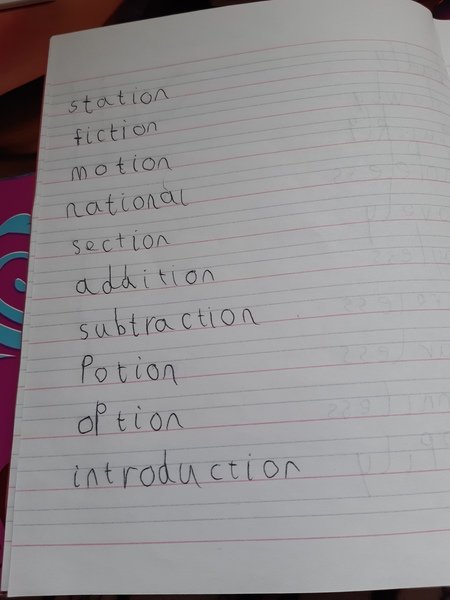 station
fiction
motion
national
section
addition
subtraction
Potion
oPtion
introduction